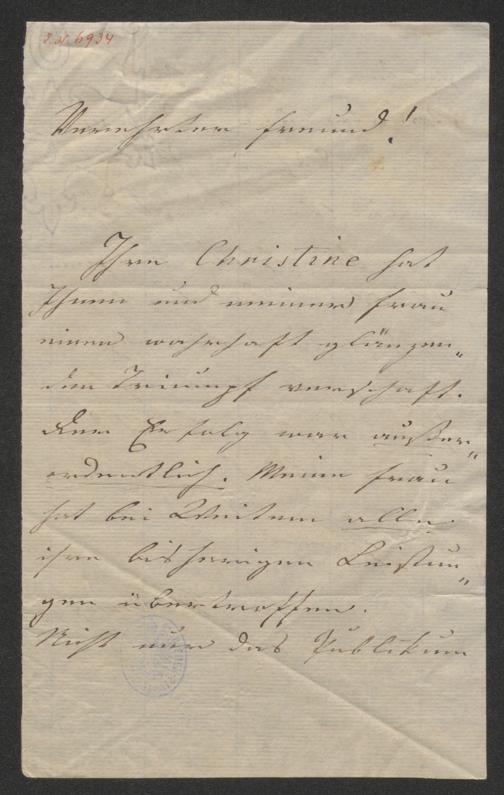 I. N. 6934
Verehrter Freund!
Ihre Christine hat
Ihnen und meiner Frau
einen wahrhaft glänzen„
den Triumpf verschaft.
Der Erfolg war außer„
ordentlich. Meine Frau
hat bei Weitem alle
ihre bisherigen Leistun„
gen übertroffen.
Nicht nur das Publikum